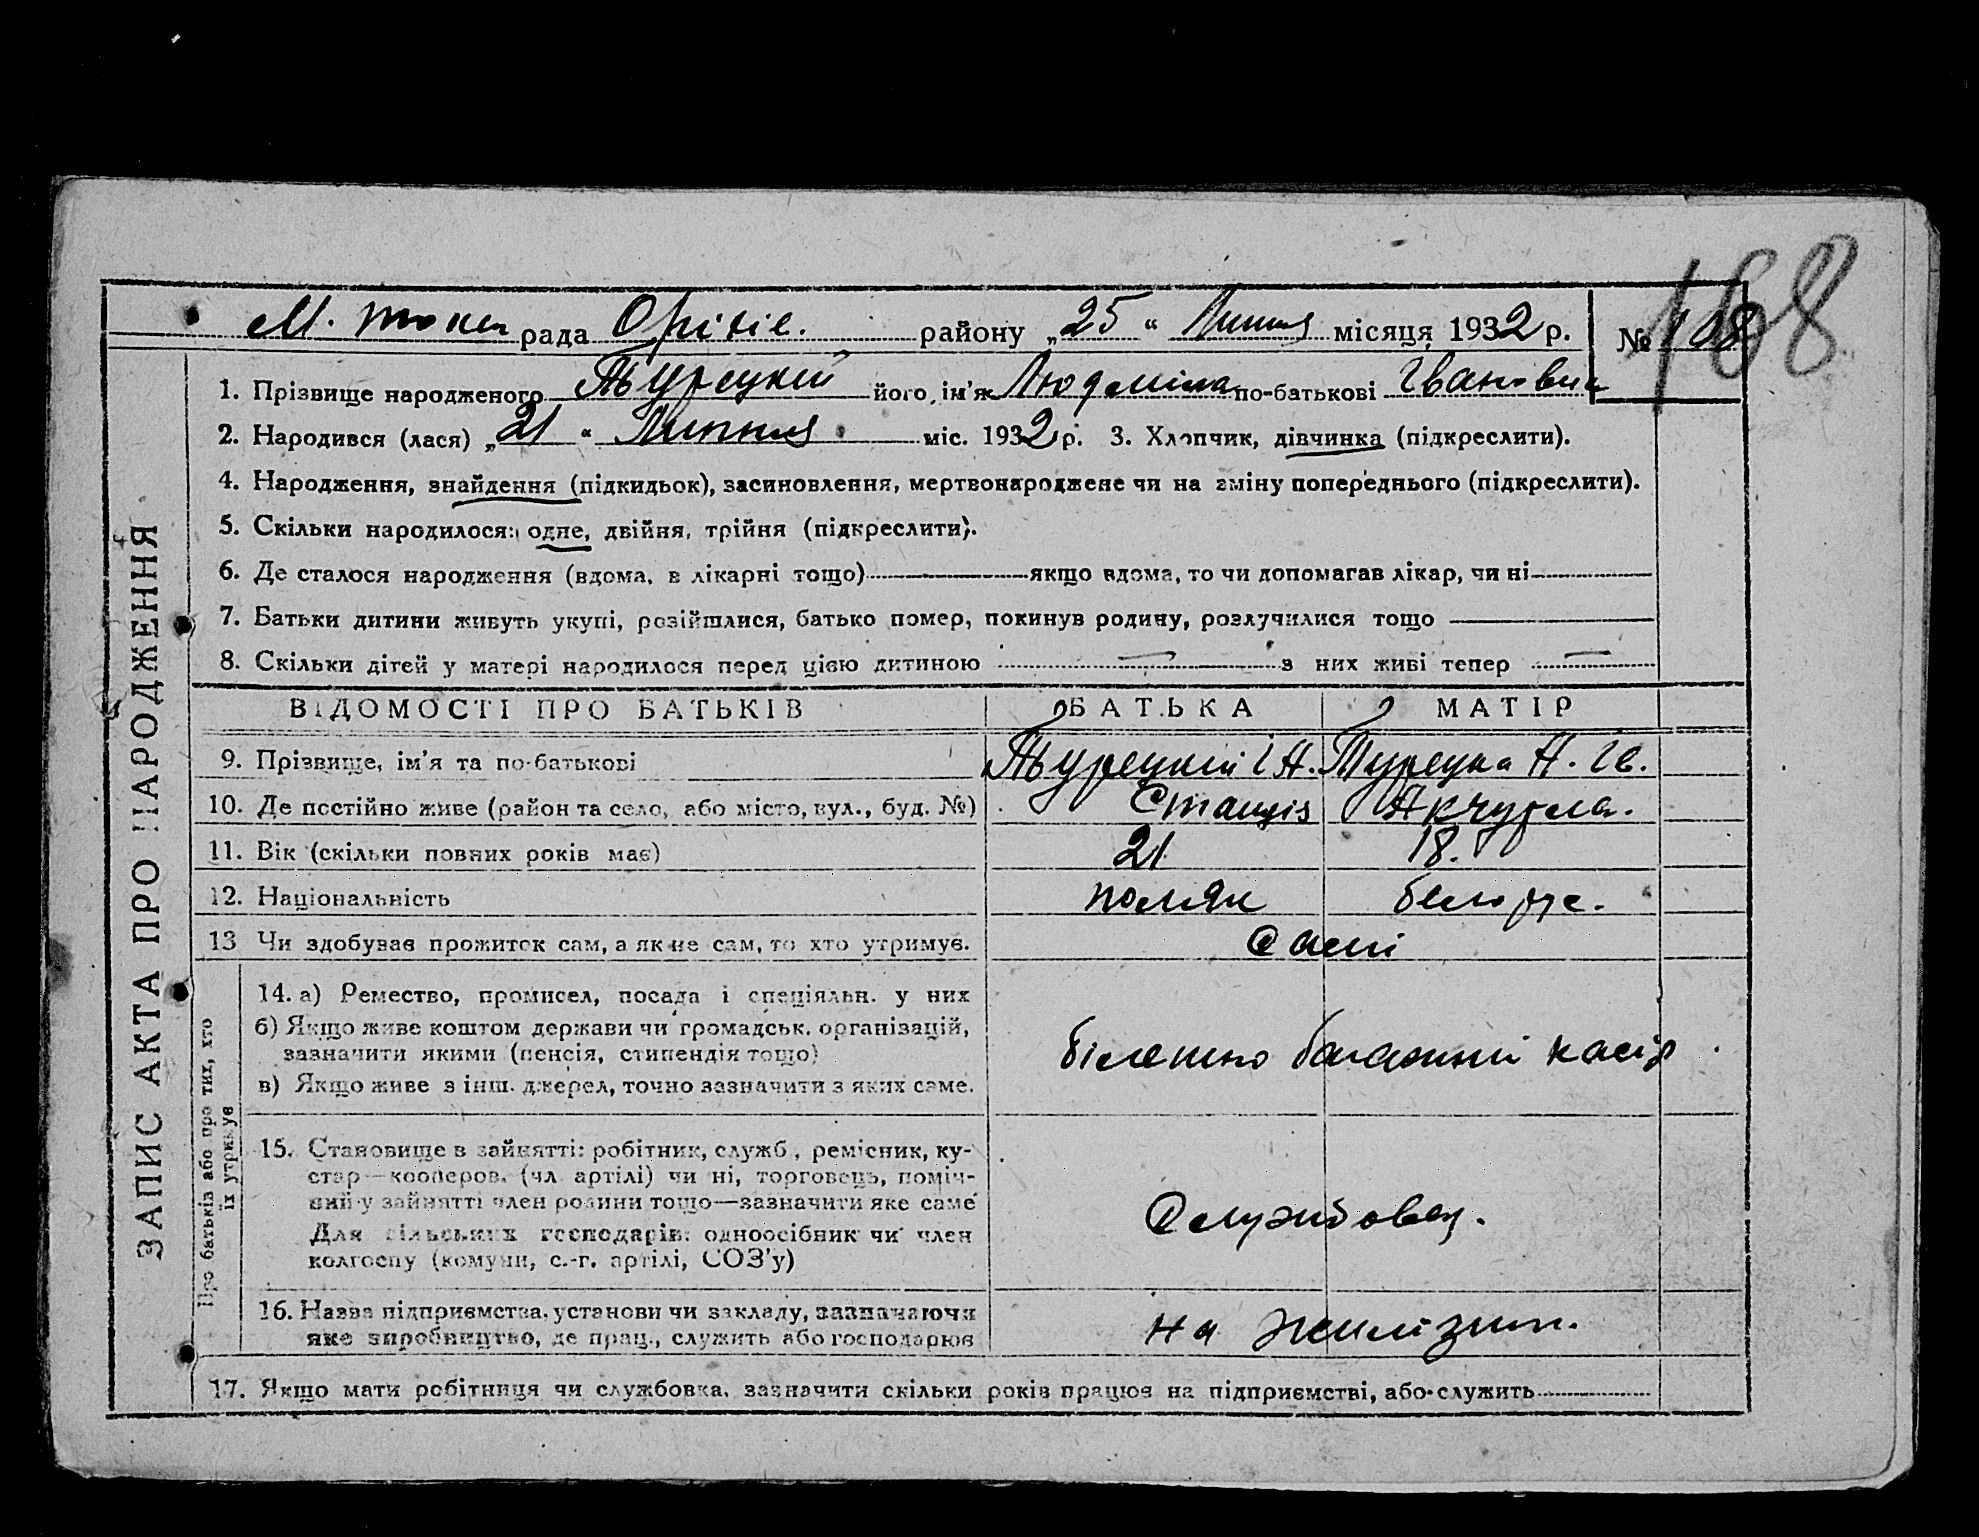 168
М. Токм рада Оріхів. району „25“ Липня місяця 1932 р. № 108
1. Прізвище народженого Турецкій його ім'я Людміла по-батькові Івановна
2. Народився (лася) „21“ Липня міс. 1932 р. 3. Хлопчик, дівчинка (підкреслити).
4. Народження, знайдення (підкидьок), засиновлення, мертвонароджене чи на зміну попереднього (підкреслити).
5. Скільки народилося: одне, двійня, трійня (підкреслити).
6. Де сталося народження (вдома, в лікарні тощо) якщо вдома, то чи допомагав лікар, чи ні
7. Батьки дитини живуть укупі, розійшлися, батько помер, покинув родину, розлучилися тощо
8. Скільки дітей у матері народилося перед цією дитиною — з них живі тепер —
ЗАПИС АКТА ПРО НАРОДЖЕННЯ
ВІДОМОСТІ ПРО БАТЬКІВ БАТЬКА МАТІР
9. Прізвище, ім'я та по-батькові Турецкій І А. Турецка А. Ів.
10. Де постійно живе (район та село, або місто, вул., буд. №) Станція
11. Вік (скільки повних років має) 21 18.
12. Національність поляк белорус.
13 Чи здобував прожиток сам, а як не сам, то хто утримує. Самі
Про батьків або про тих, хто
їх утримує
14. а) Ремество, промисел, посада і спеціяльн. у них
б) Якщо живе коштом держави чи громадськ. організацій,
зазначити якими (пенсія, стипендія тощо)
в) Якщо живе з інш. джерел, точно зазначити з яких саме.
білетно багажний касір
15. Становище в зайнятті: робітник, служб., ремісник, ку-
стар—кооперов. (чл. артілі) чи ні, торговець, поміч-
ний у зайнятті член родини тощо—зазначити яке саме
Для сільських господарів: одноосібник чи член
колгоспу (комуни, с.-г. артілі, СОЗ'у)
Службовец.
16. Назва підприємства, установи чи закладу, зазначаючи
яке виробництво, де прац., служить або господарює
на желізн.
17. Якщо мати робітниця чи службовка, зазначити скільки років працює на підприємстві, або служить